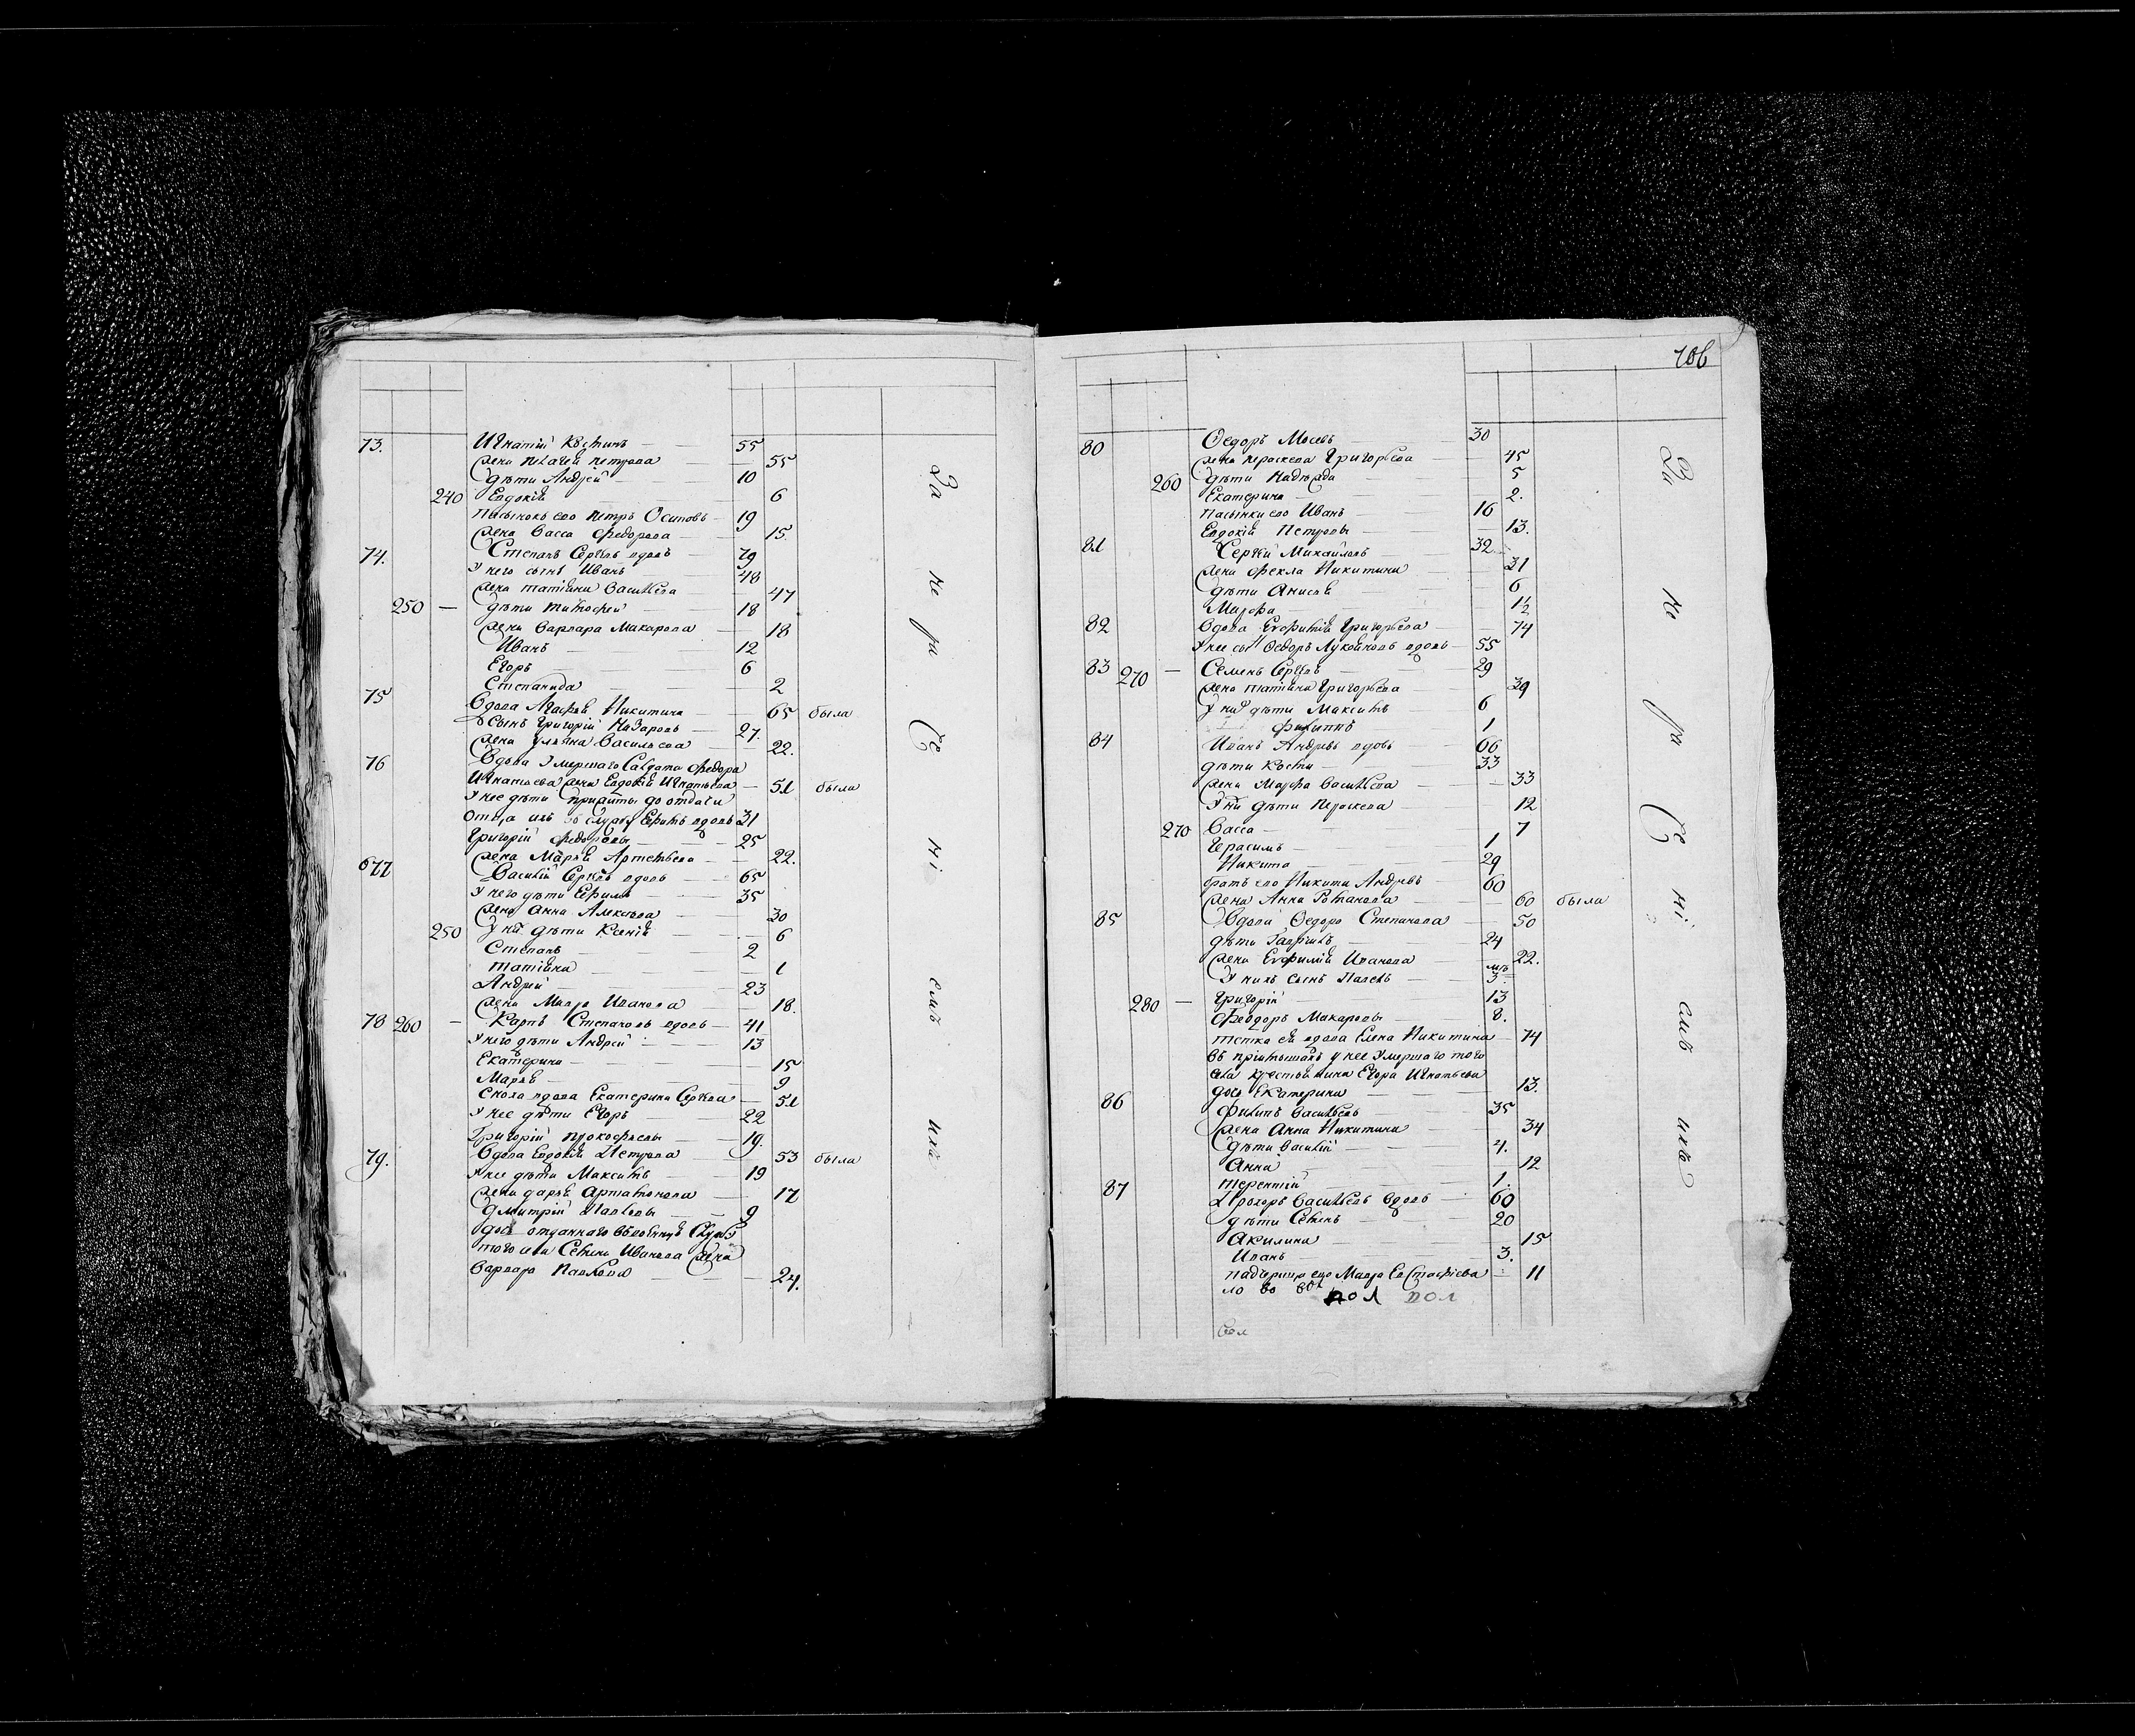 73. Игнатiй Костинъ 55
жена Пелагея Петрова 55
дѣти Андрей 10
240 Евдокiя 6
пасынокъ его Петръ Осиповъ 19
жена Васса Федорова 15.
74. Степанъ Сергѣевъ вдовъ 79
У него сынъ Иванъ 48
жена татiяна Васильева 47
250 — дѣти тимофей 18
жена Варвара Макарова 18
Иванъ 12
Егоръ 6
Степанида 2
75 Вдова Агафья Никитина 65 была
сынъ Григорiй Назаровъ 27.
жена Ульяна Васильева 22.
76 Вдова умершаго Салдата Федора
Игнатьева жена Евдокiя Игнатьева 51 была
У нее дѣти прижиты до отдачи
отца ихъ въ службу вдовъ 31
Григорiй Федоровы 25
жена Марья Артемьева 22.
677 Василiй Сергѣевъ вдовъ 65
У него дѣти Ефимъ 35
жена Анна Алексѣева 30
250 У нихъ дѣти Ксенiя 6
Степанъ 2
татiяна 1
Андрей 23
жена Мавра Иванова 18.
78 260 — Карпъ Степановъ вдовъ 41
У него дѣти Андрей 13
Екатерина 15
Марья 9
Сноха вдова Екатерина Сергѣева 51
У нее дѣти Егоръ 22
Григорiй Прокофьевы 19.
79. Вдова Евдокiя Петрова 53 была
У нее дѣти Максимъ 19
жена дарья Артамонова 17
Дмитрiй Павловы 9
отданнаго въ военную службу
того села Семена Иванова жена
Варвара Павлова 24.
За не ра Сѣ нi емъ ихъ
106
80 Федоръ Мосевъ 30
жена Праскева Григорьева 45
260 дѣти Надежда 5
Екатерина 2.
пасынки его Иванъ 16
Евдокiя Петровы 13.
81 Сергѣй Михайловъ 32
жена Фекла Никитина 31
дѣти Анисья 6
Марфа 1½
82 Вдова Евфимiя Григорьева 74
У нее сынъ Федоръ вдовъ 55
83 270 — Семенъ Сергѣевъ 29
жена татiяна Григорьева 39
У них дѣти Максимъ 6
Филиппъ 1
84 Иванъ Андреевъ вдовъ 66
дѣти Костя 33
жена Марфа Васильева 33
У них дѣти Праскева 12
270 Васса 7
Герасимъ 1
Никита 29
братъ его Никита Андреевъ 60
жена Анна Романова 60 была
85 Вдова Федора Степанова 50
дѣти Гаврила 24
жена Евфимiя Иванова 22.
У нихъ сынъ Павелъ мъ 3.
280 — Григорiй 13
Феодоръ Макаровы 8.
тетка ея вдова Елена Никитина 74
въ у нее умершаго того
села крестьянина Егора Игнатьева
дочь Екатерина 13.
86 Филипъ Васильевъ 35
жена Анна Никитина 34
дѣти Василiй 4.
Анна 12
терентiй 1.
87 Прохоръ Васильевъ вдовъ 60
дѣти Семенъ 20
Акилина 15
Иванъ 3.
падчерица его Мавра Евстафiева 11
ло во вол пол пол
вол
За не ра Сѣ нi емъ ихъ